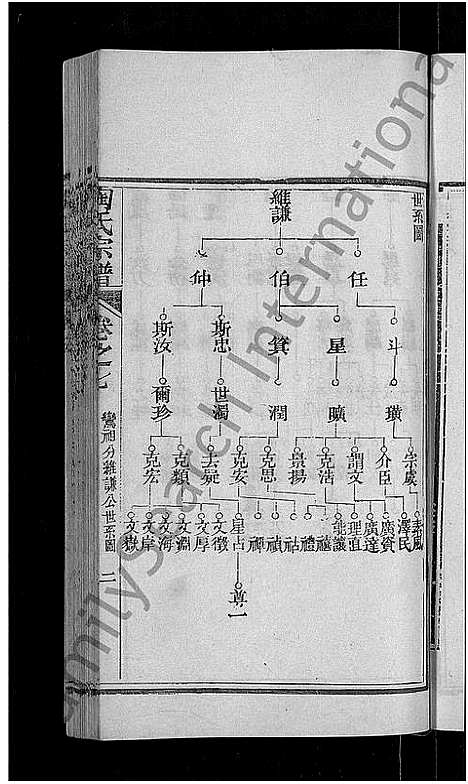 世系圖
維謙
任
伯
仲
斗
星
箕
斯忠
斯汝
璜
曠
潤
世濁
爾珍
宗虞
介臣
謂文
克浩
景揚
克思
克安
去疑
克類
克宏
素風
澤民
廣質
廣達
理直
能讓
禧
禮
祜
禎
禪
星占
文徵
文厚
文淵
文海
文岸
文嶽
尊一
陶氏宗譜
卷之七
鸞祖分維謙公世系圖
二
FamilySearch International